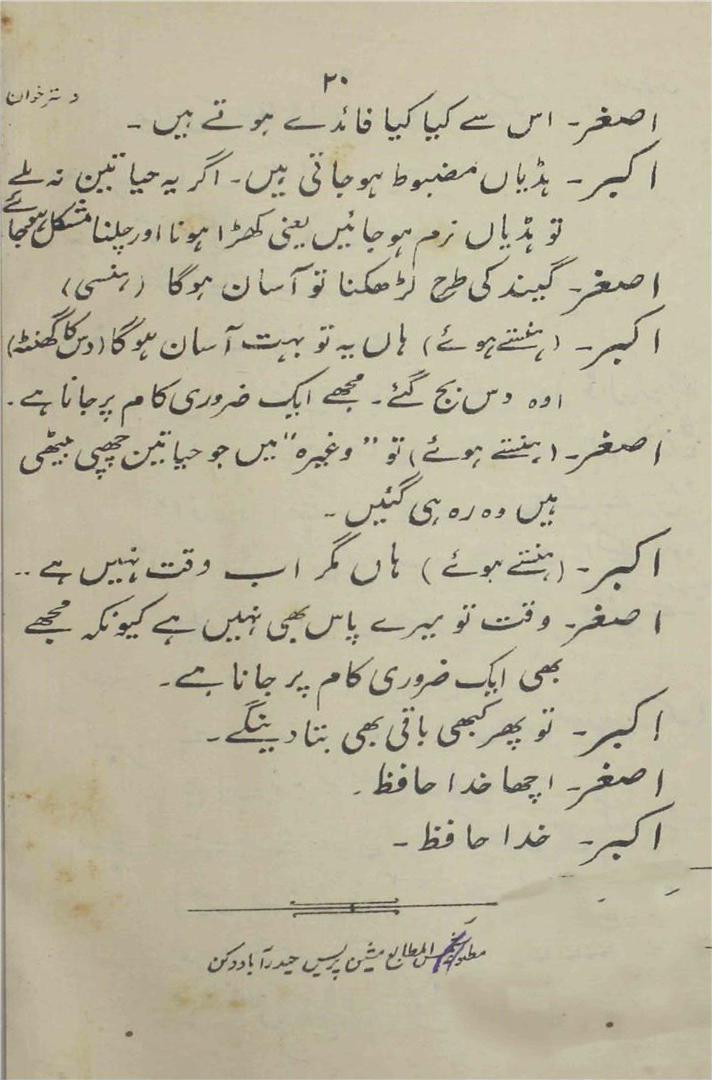 ۲۰
دسترخوان
اصغر۔ اس سے کیا کیا فائدے ہوتے ہیں۔
اکبر۔ ہڈیاں مضبوط ہوجاتی ہیں۔ اگر یہ حیاتین نہ ملے
تو ہڈیاں نرم ہوجائیں یعنی کھڑا ہونا اور چلنا مشکل ہوجائے
اصغر۔ گیند کی طرح لڑھکنا تو آسان ہوگا (ہنسی)
اکبر۔ (ہنستے ہوئے) ہاں یہ تو بہت آسان ہوگا (دس کا گھنٹہ)
اوہ دس بج گئے۔ مجھے ایک ضروری کام پر جانا ہے۔
اصغر۔ (ہنستے ہوئے) تو "وغیرہ" میں جو حیاتین چھپی بیٹھی
ہیں وہ رہ ہی گئیں۔
اکبر۔ (ہنستے ہوئے) ہاں مگر اب وقت نہیں ہے ..
اصغر۔ وقت تو میرے پاس بھی نہیں ہے کیونکہ مجھے
بھی ایک ضروری کام پر جانا ہے۔
اکبر۔ تو پھر کبھی باقی بھی بتا دینگے۔
اصغر۔ اچھا خدا حافظ۔
اکبر۔ خدا حافظ۔
مطبوعہ المطابع مشین پریس حیدرآباد دکن